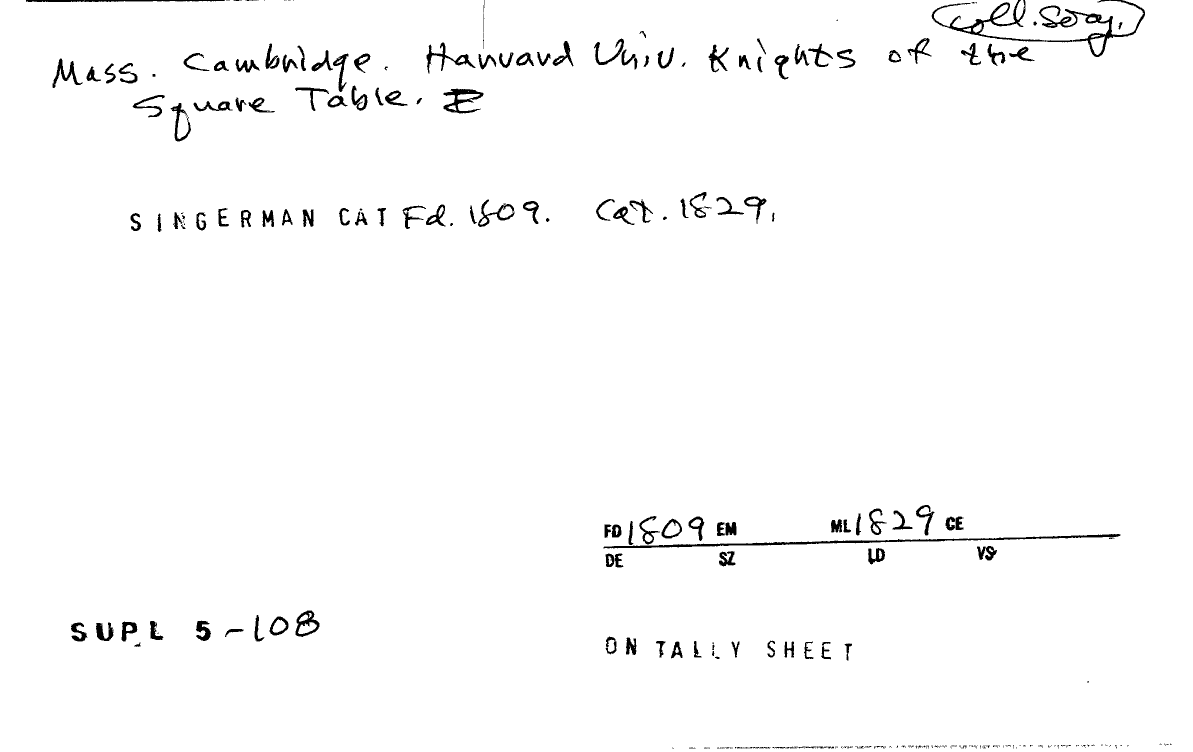 Coll. Socy.
Mass. Cambridge. Harvard Univ. Knights of the
Square Table. E
SINGERMAN CAT Fd. 1809. Cat. 1829.
FD 1809 EM ML 1829 CE
DE SZ LD VS
SUPL 5-108
ON TALLY SHEET